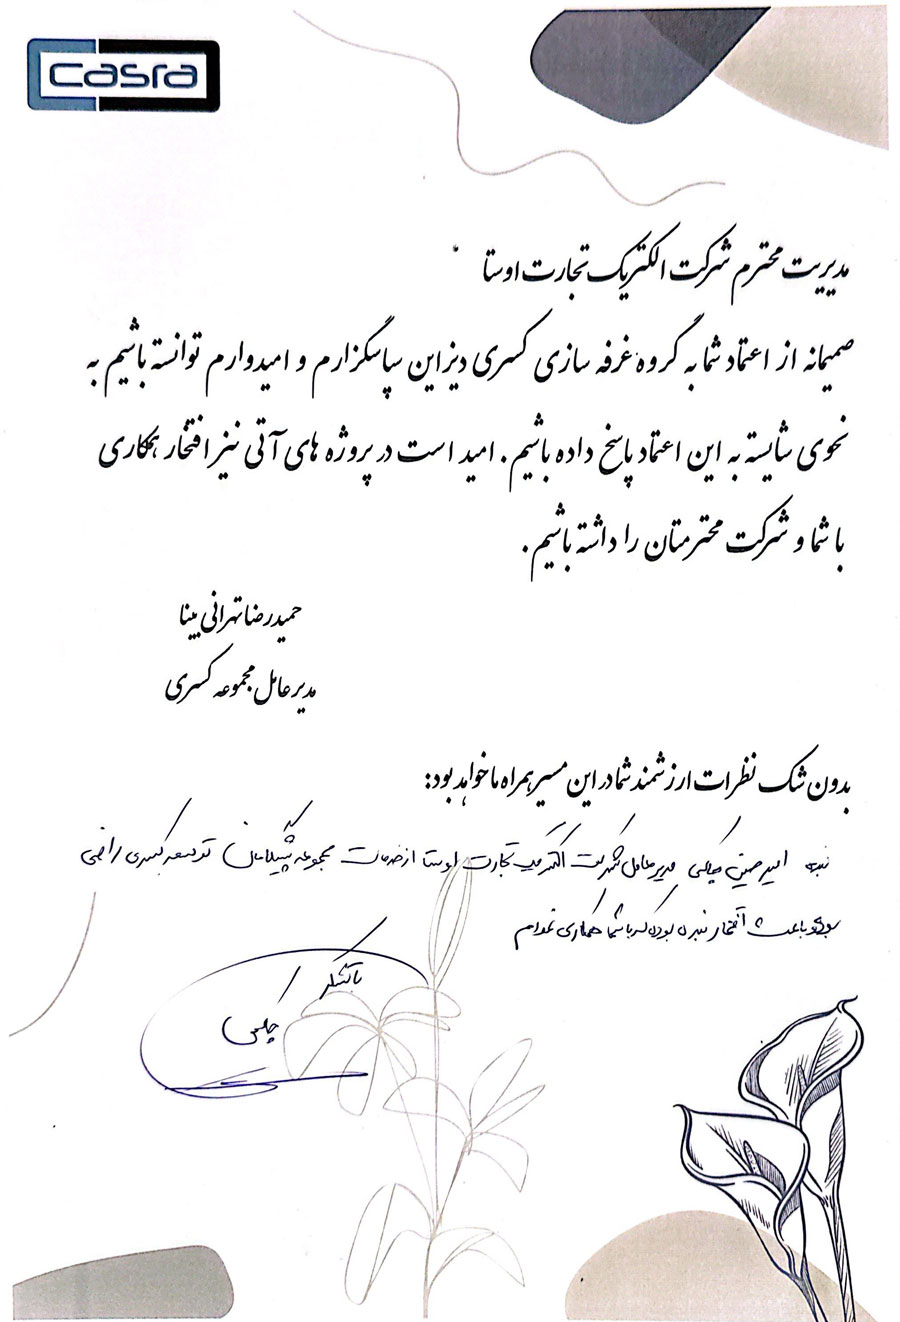 casra
مدیریت محترم شرکت الکتریک تجارت اوستا
صمیمانه از اعتماد شما به گروه غرفه سازی کسری دیزاین سپاسگزارم و امیدوارم توانسته باشیم به
نحوی شایسته به این اعتماد پاسخ داده باشیم. امید است در پروژه های آتی نیز افتخار همکاری
با شما و شرکت محترمتان را داشته باشیم.
حمیدرضا تهرانی بینا
مدیرعامل مجموعه کسری
بدون شک نظرات ارزشمند شما در این مسیر همراه ما خواهد بود:
امیرحسین مدیرعامل شرکت الکتریک تجارت اوستا از خدمات مجموعه پیشگامان توسعه کسری راضی
افتخار بنده بوده که با شما همکاری نمودم
با تشکر